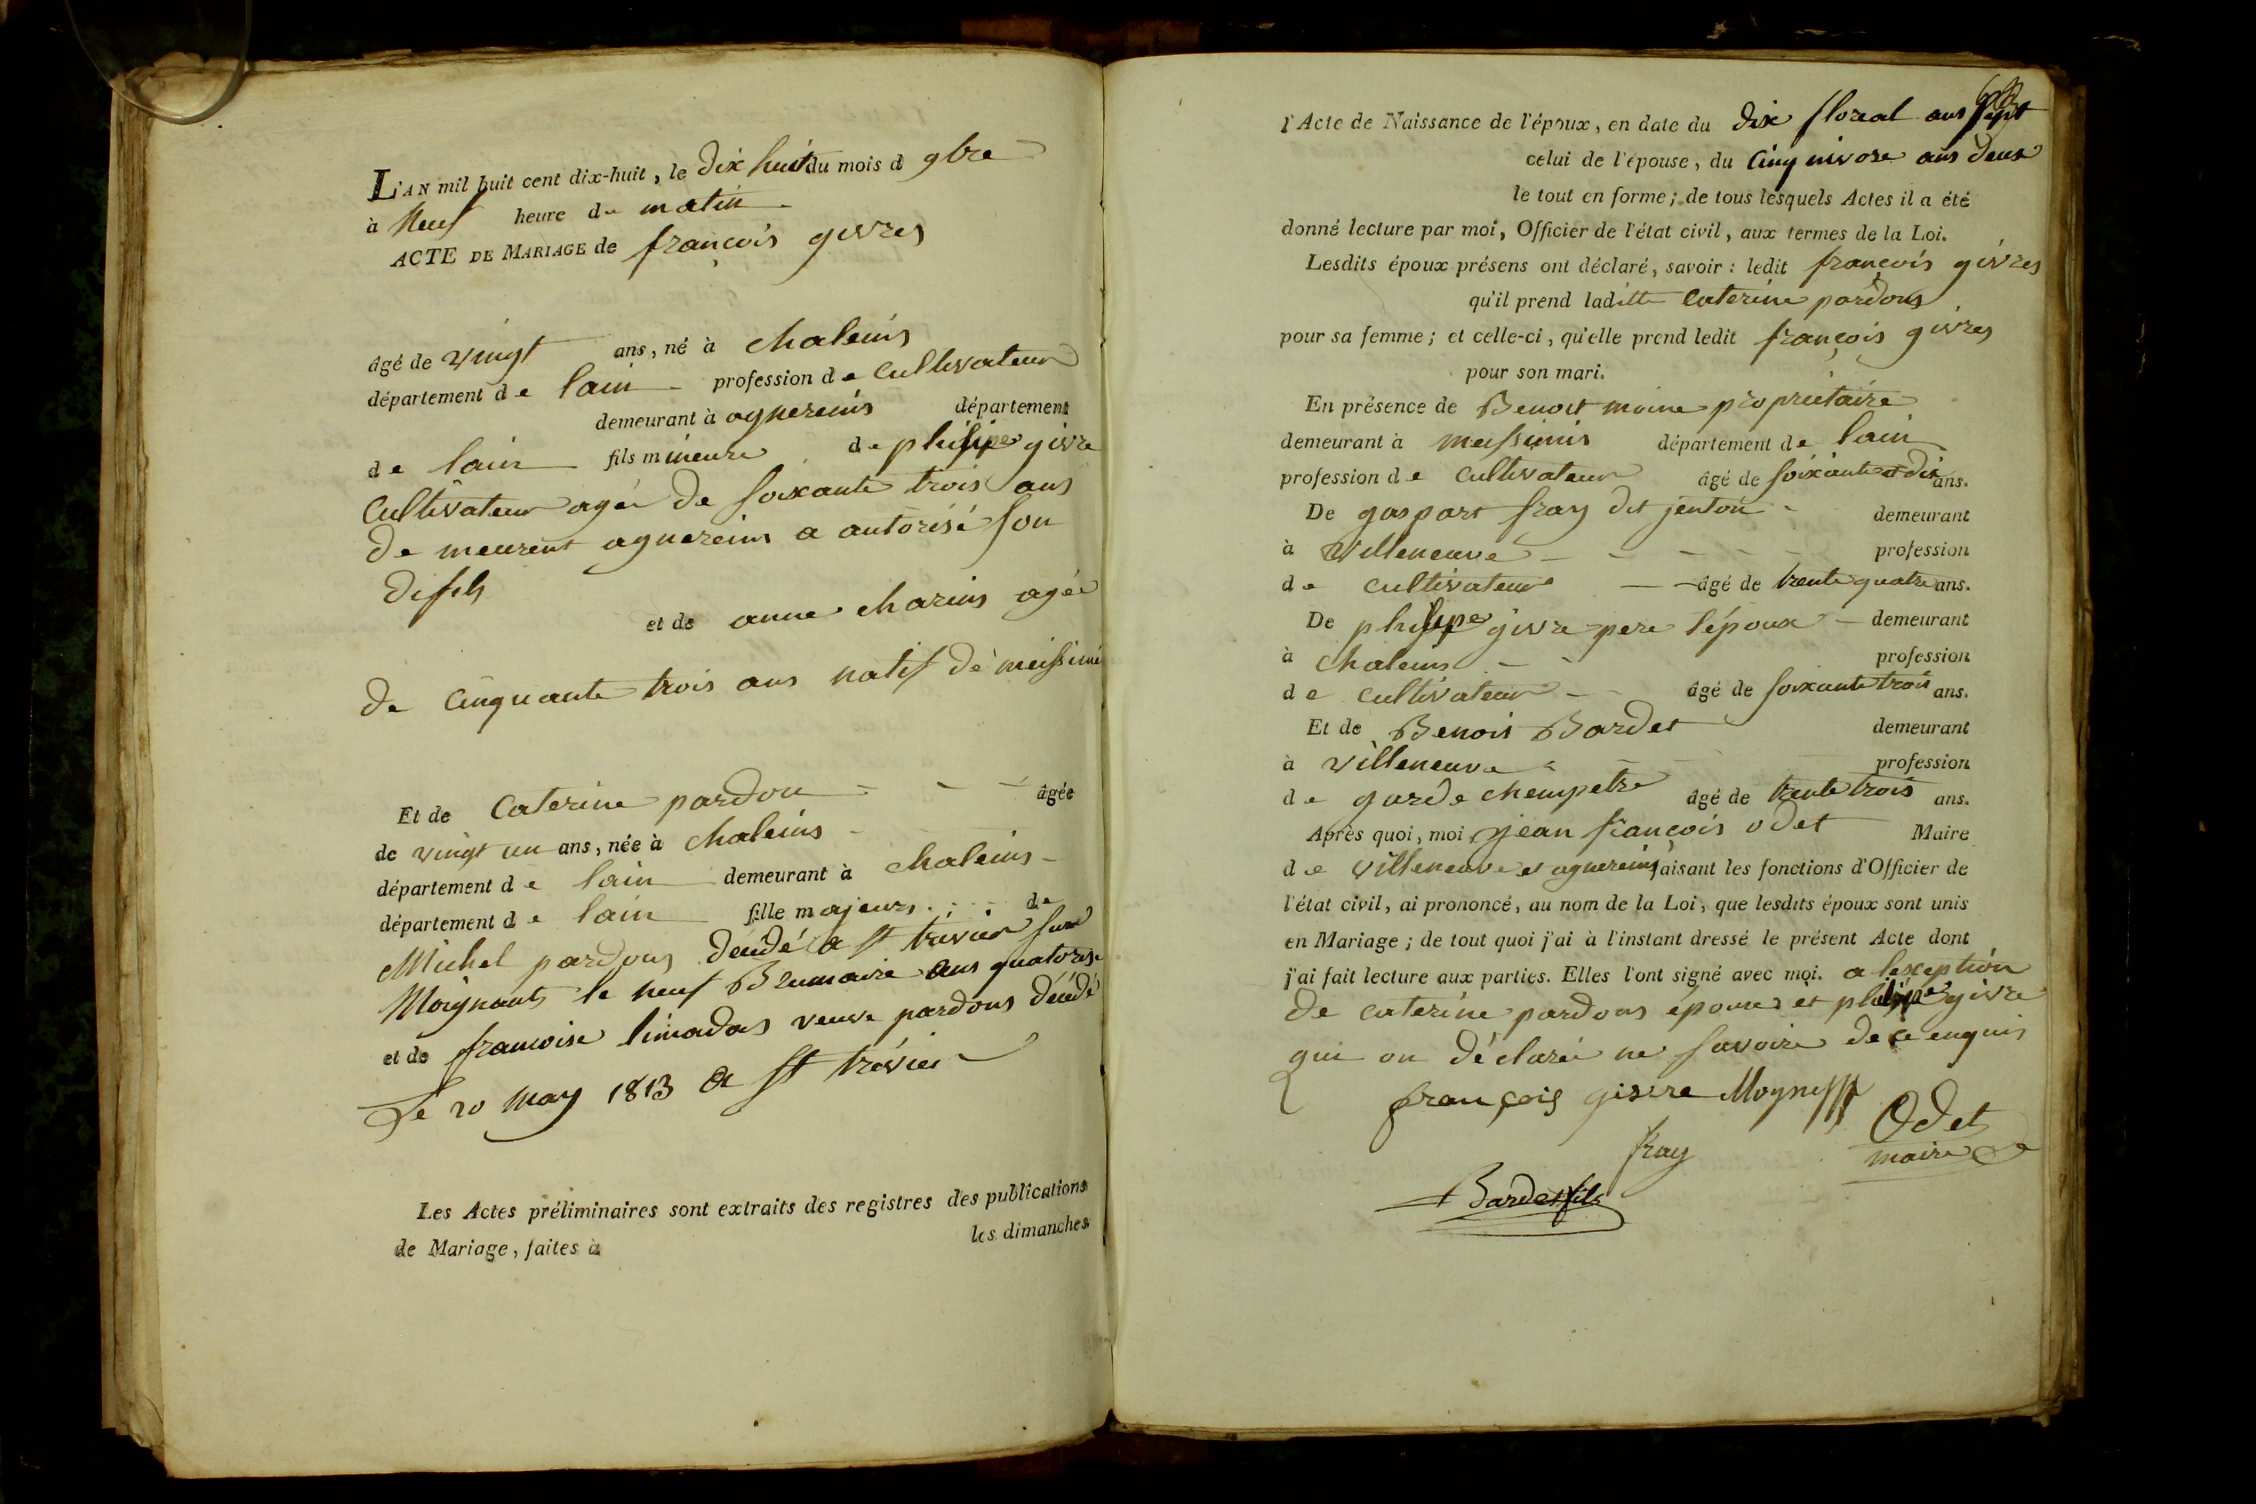 L'AN mil huit cent dix-huit, le dix huit du mois d 9bre
à Neuf heure du matin
ACTE DE MARIAGE de françois givres
âgé de vingt ans, né à chaleins
département de lain profession de cultivateur
demeurant à agnereins département
de lain fils mineure de philipe givre
cultivateur agée de soixante trois ans
de meurent agnereins a autorisé son
di fils
et de anne charins agée
de cinquante trois ans natif de meissimi
Et de Caterine pardon âgée
de vingt un ans, née à chaleins
département de lain demeurant à chaleins
département de lain fille majeurs de
Michel pardons décédé a st trivier sur
Moignants le neuf Brumaire ans quatorse
et de francoise limadas veuve pardons décédé
Le 20 may 1813 a st trévier
Les Actes préliminaires sont extraits des registres des publications
de Mariage, faites à les dimanches
l'Acte de Naissance de l'époux, en date du dix floreal ans sept
celui de l'épouse, du cinq nivose ans deux
le tout en forme; de tous lesquels Actes il a été
donné lecture par moi, Officier de l'état civil, aux termes de la Loi.
Lesdits époux présens ont déclaré, savoir : ledit françois givres
qu'il prend laditte caterine pardons
pour sa femme; et celle-ci, qu'elle prend ledit françois givres
pour son mari.
En présence de Benoit moine propriétaire
demeurant à meissimis département de lain
profession de cultivateur âgé de soixante dix ans.
De gaspart fray dit jenton demeurant
à villeneuve profession
de cultivateur âgé de trente quatre ans.
De philipe givre pere l'époux demeurant
à chaleins profession
de cultivateur âgé de soixante trois ans.
Et de Benois Bardet demeurant
à villeneuve profession
de garde chempetre âgé de trente trois ans.
Après quoi, moi jean françois odet Maire
de villeneuve et agnereins faisant les fonctions d'Officier de
l'état civil, ai prononcé, au nom de la Loi, que lesdits époux sont unis
en Mariage; de tout quoi j'ai à l'instant dressé le présent Acte dont
j'ai fait lecture aux parties. Elles l'ont signé avec moi. a lexeption
de caterine pardons épouse et philipe givre
qui on déclarée ne savoire de ce enquis
françois givre
Odet
fray maire
Bardet fils